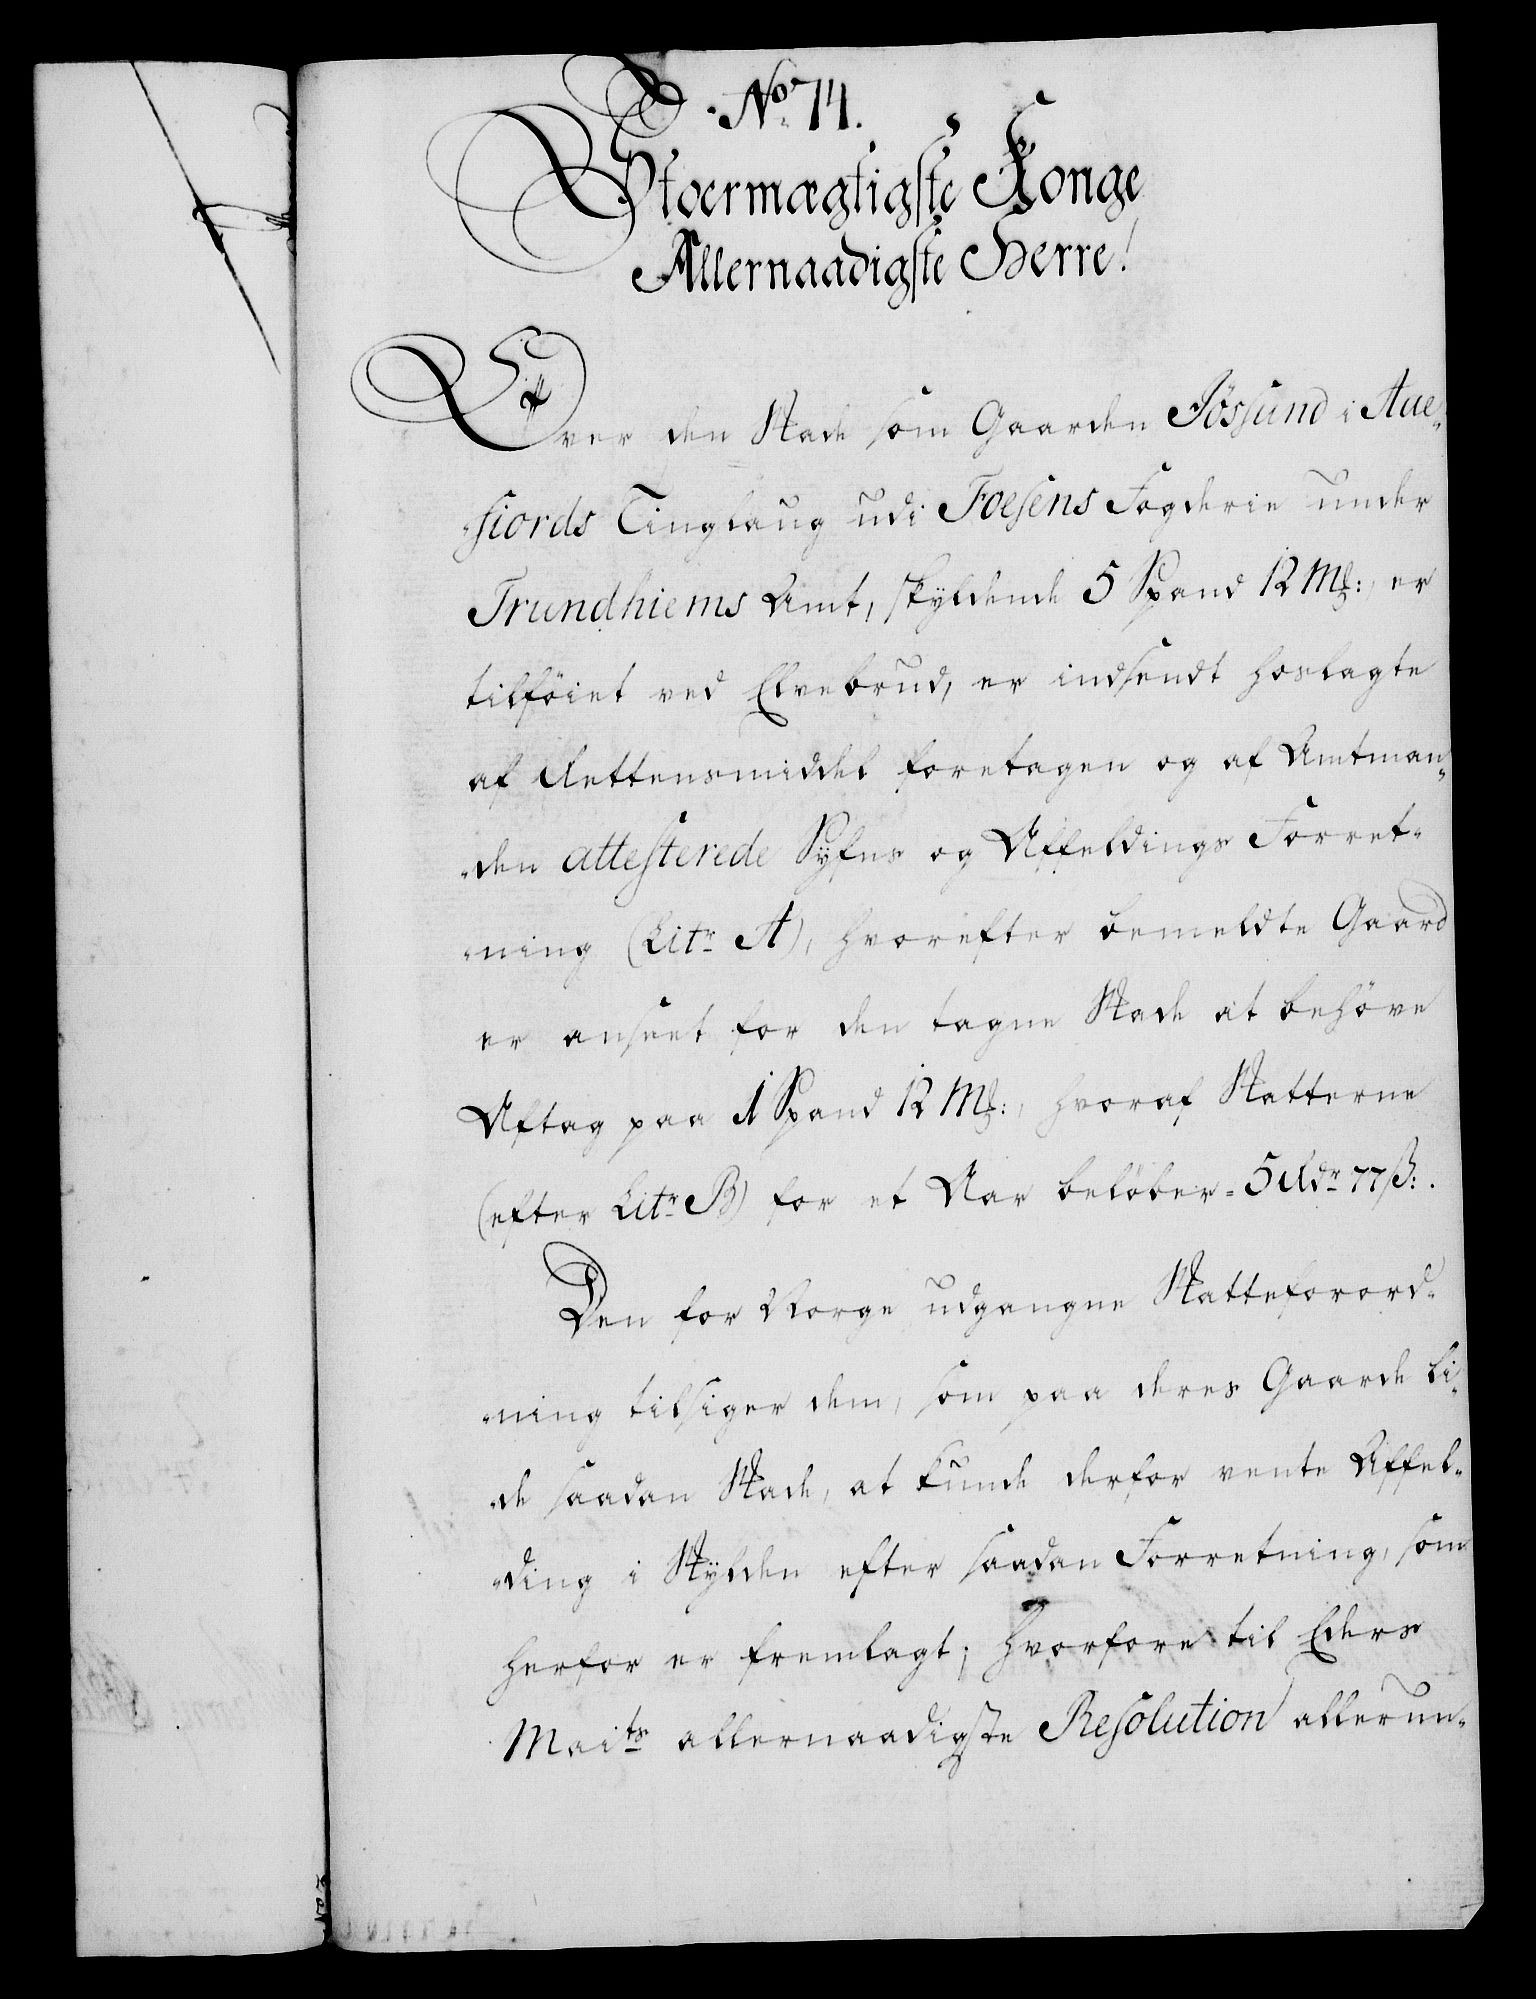 No 74.
Stoermægtigste Konge
Allernaadigste Herre!
Over den Skade som Gaarden Jössund i Aue-
fiords Tinglaug udi Foesens Fogderie under
Trundhiems Amt, skyldende 5 Spand 12 Mk:, er
tilföiet ved Elvebrud, er indsendt hoslagte
af Rettensmiddel foretagen og af Amtman-
den attesterede Syfns og Affældings Forret-
ning (Litr A), hvorefter bemeldte Gaard
er anseet for den tagne Skade at behöve
Aftag paa 1 Spand 12 Mk:, hvoraf Skatterne
(efter Litr B) for et Aar belöber = 5 Rdr 77 ß:.
Den for Norge udgangne Skatteforord-
ning tilsiger dem, som paa deres Gaarde li-
de saadan Skade, at kunde derfor vente Affel-
ding i Skylden efter saadan Forretning, som
herfor er fremlagt; hvorfore til Eders
Maits allernaadigste Resolution allerun-